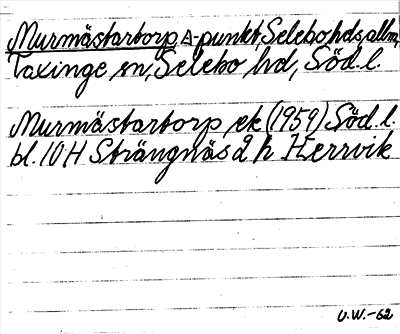 Murmästartorp △-punkt, Selebo hds allm,
Taxinge sn, Selebo hd, Söd. l.
Murmästartorp, ek (1959) Söd. l.
bl. 10 H Strängnäs 2 h Herrvik
U.W.-62